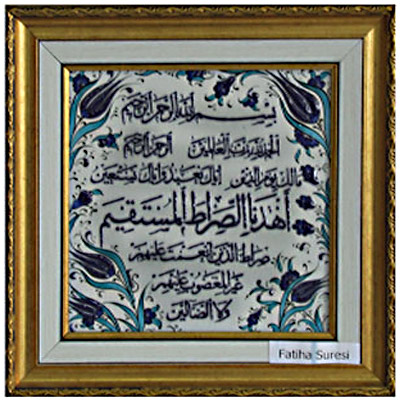 بسم الله الرحمن الرحيم
الحمد لله رب العالمين الرحمن الرحيم
مالك يوم الدين اياك نعبد واياك نستعين
اهدنا الصراط المستقيم
صراط الذين انعمت عليهم
غير المغضوب عليهم
ولا الضالين
Fatiha Suresi